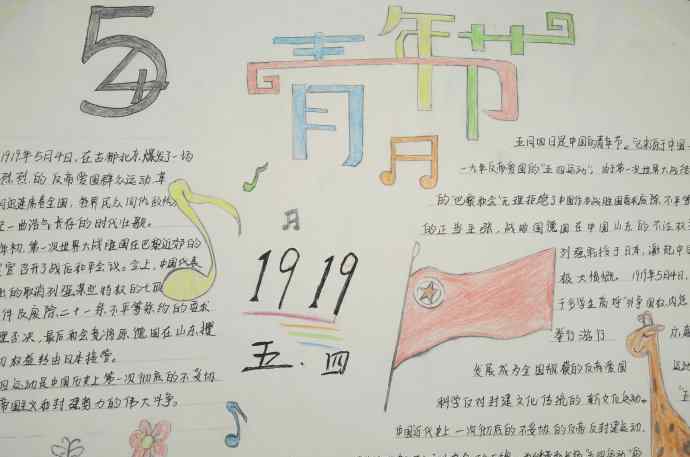 54
青年节
1919年5月4日,在古都北京爆发了一场
烈烈的反帝爱国群众运动,革
迅速席卷全国,各界民众同仇敌忾
一曲浩气长存的时代壮歌。
年初,第一次世界大战胜国在巴黎近郊的
宫召开了战后和平会议。会上,中国代表
出的取消列强某些特权的七项
件及废除二十一条不平等条约的要求
否决,最后和会竟将原德国在山东攫
权益转由日本接管。
四运动是中国历史上第一次彻底的不妥协
帝国主义和封建势力的伟大斗争。
1919
五.四
五月四日是中国的青年节。它来源于中国
一九年反帝爱国的"五四运动",由于第一次世界大战结
的"巴黎和会"无理拒绝了中国作为战胜国要求废除不平等
的正当主张,战败国德国在中国山东的不法权
列强转于日本,激起中国
极大愤慨。1919年5月4日,
于多学生高呼"外争国权,内惩
举行游行
发展成为全国规模的反帝爱国
运动
科学反对封建文化传统的新文化运动。
"五
中国近代史上一次彻底的不妥协的反帝反封建运动,